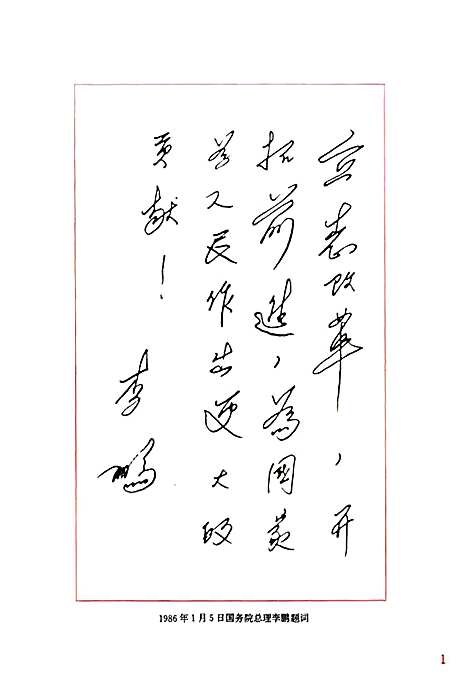 立志改革,开
拓前進,為國家
為人民作出更大的
贡献!
李鹏
1986年1月5日国务院总理李鹏题词
1